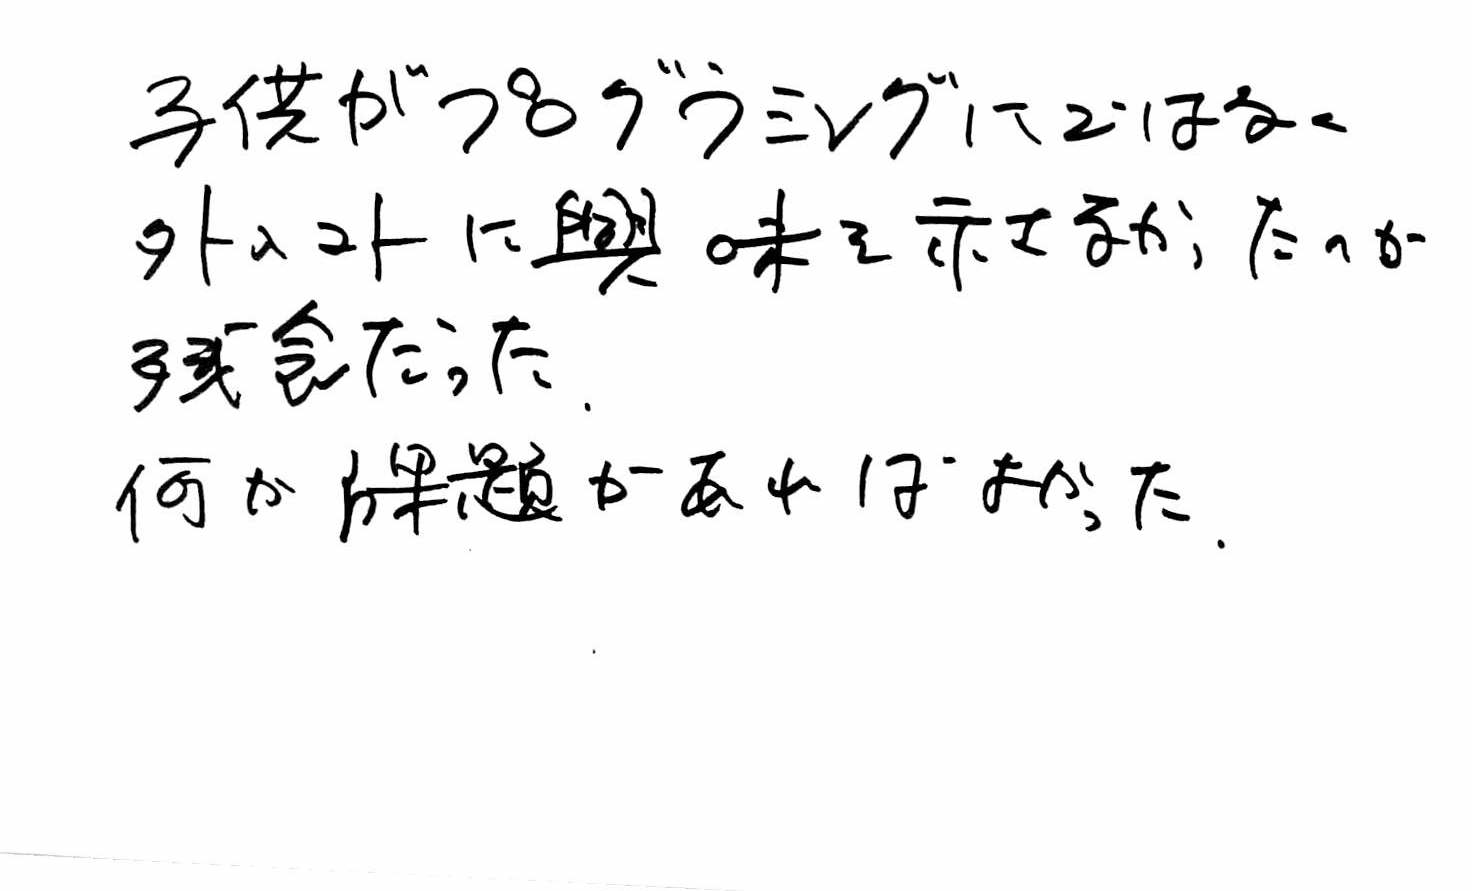 子供がプログラミングにではなく
外のコトに興味を示さなかったのが
残念だった.
何か課題があればよかった.